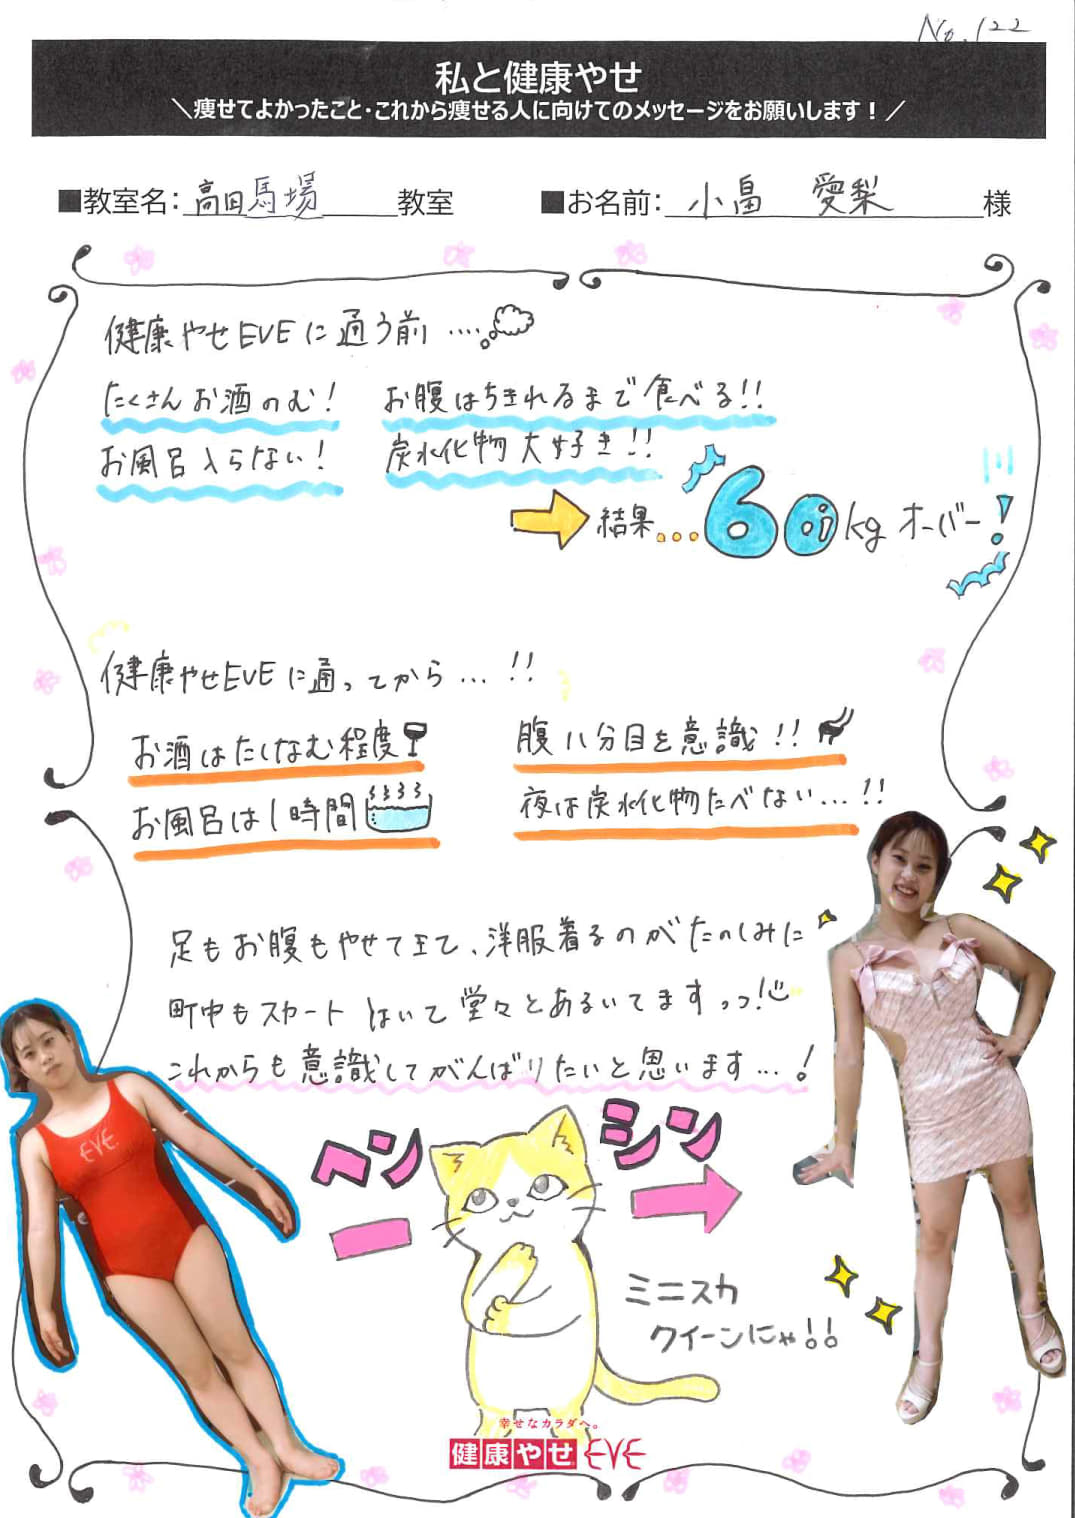 No.122
私と健康やせ
＼痩せてよかったこと・これから痩せる人に向けてのメッセージをお願いします！／
■教室名：高田馬場教室 ■お名前：小畠 愛梨様
健康やせEVEに通う前....
たくさんお酒のむ! お腹はちきれるまで食べる!!
お風呂入らない! 炭水化物大好き!!
結果...60kgオーバー!
健康やせEVEに通ってから...!!
お酒はたしなむ程度 腹八分目を意識!!
お風呂は1時間 夜は炭水化物たべない...!!
足もお腹もやせてきて、洋服着るのがたのしみに
町中もスカートはいて堂々とあるいてますっっ!
これからも意識してがんばりたいと思います...!
EVE
ヘンシン
ミニスカ
クイーンにゃ!!
幸せなカラダへ。
健康やせEVE